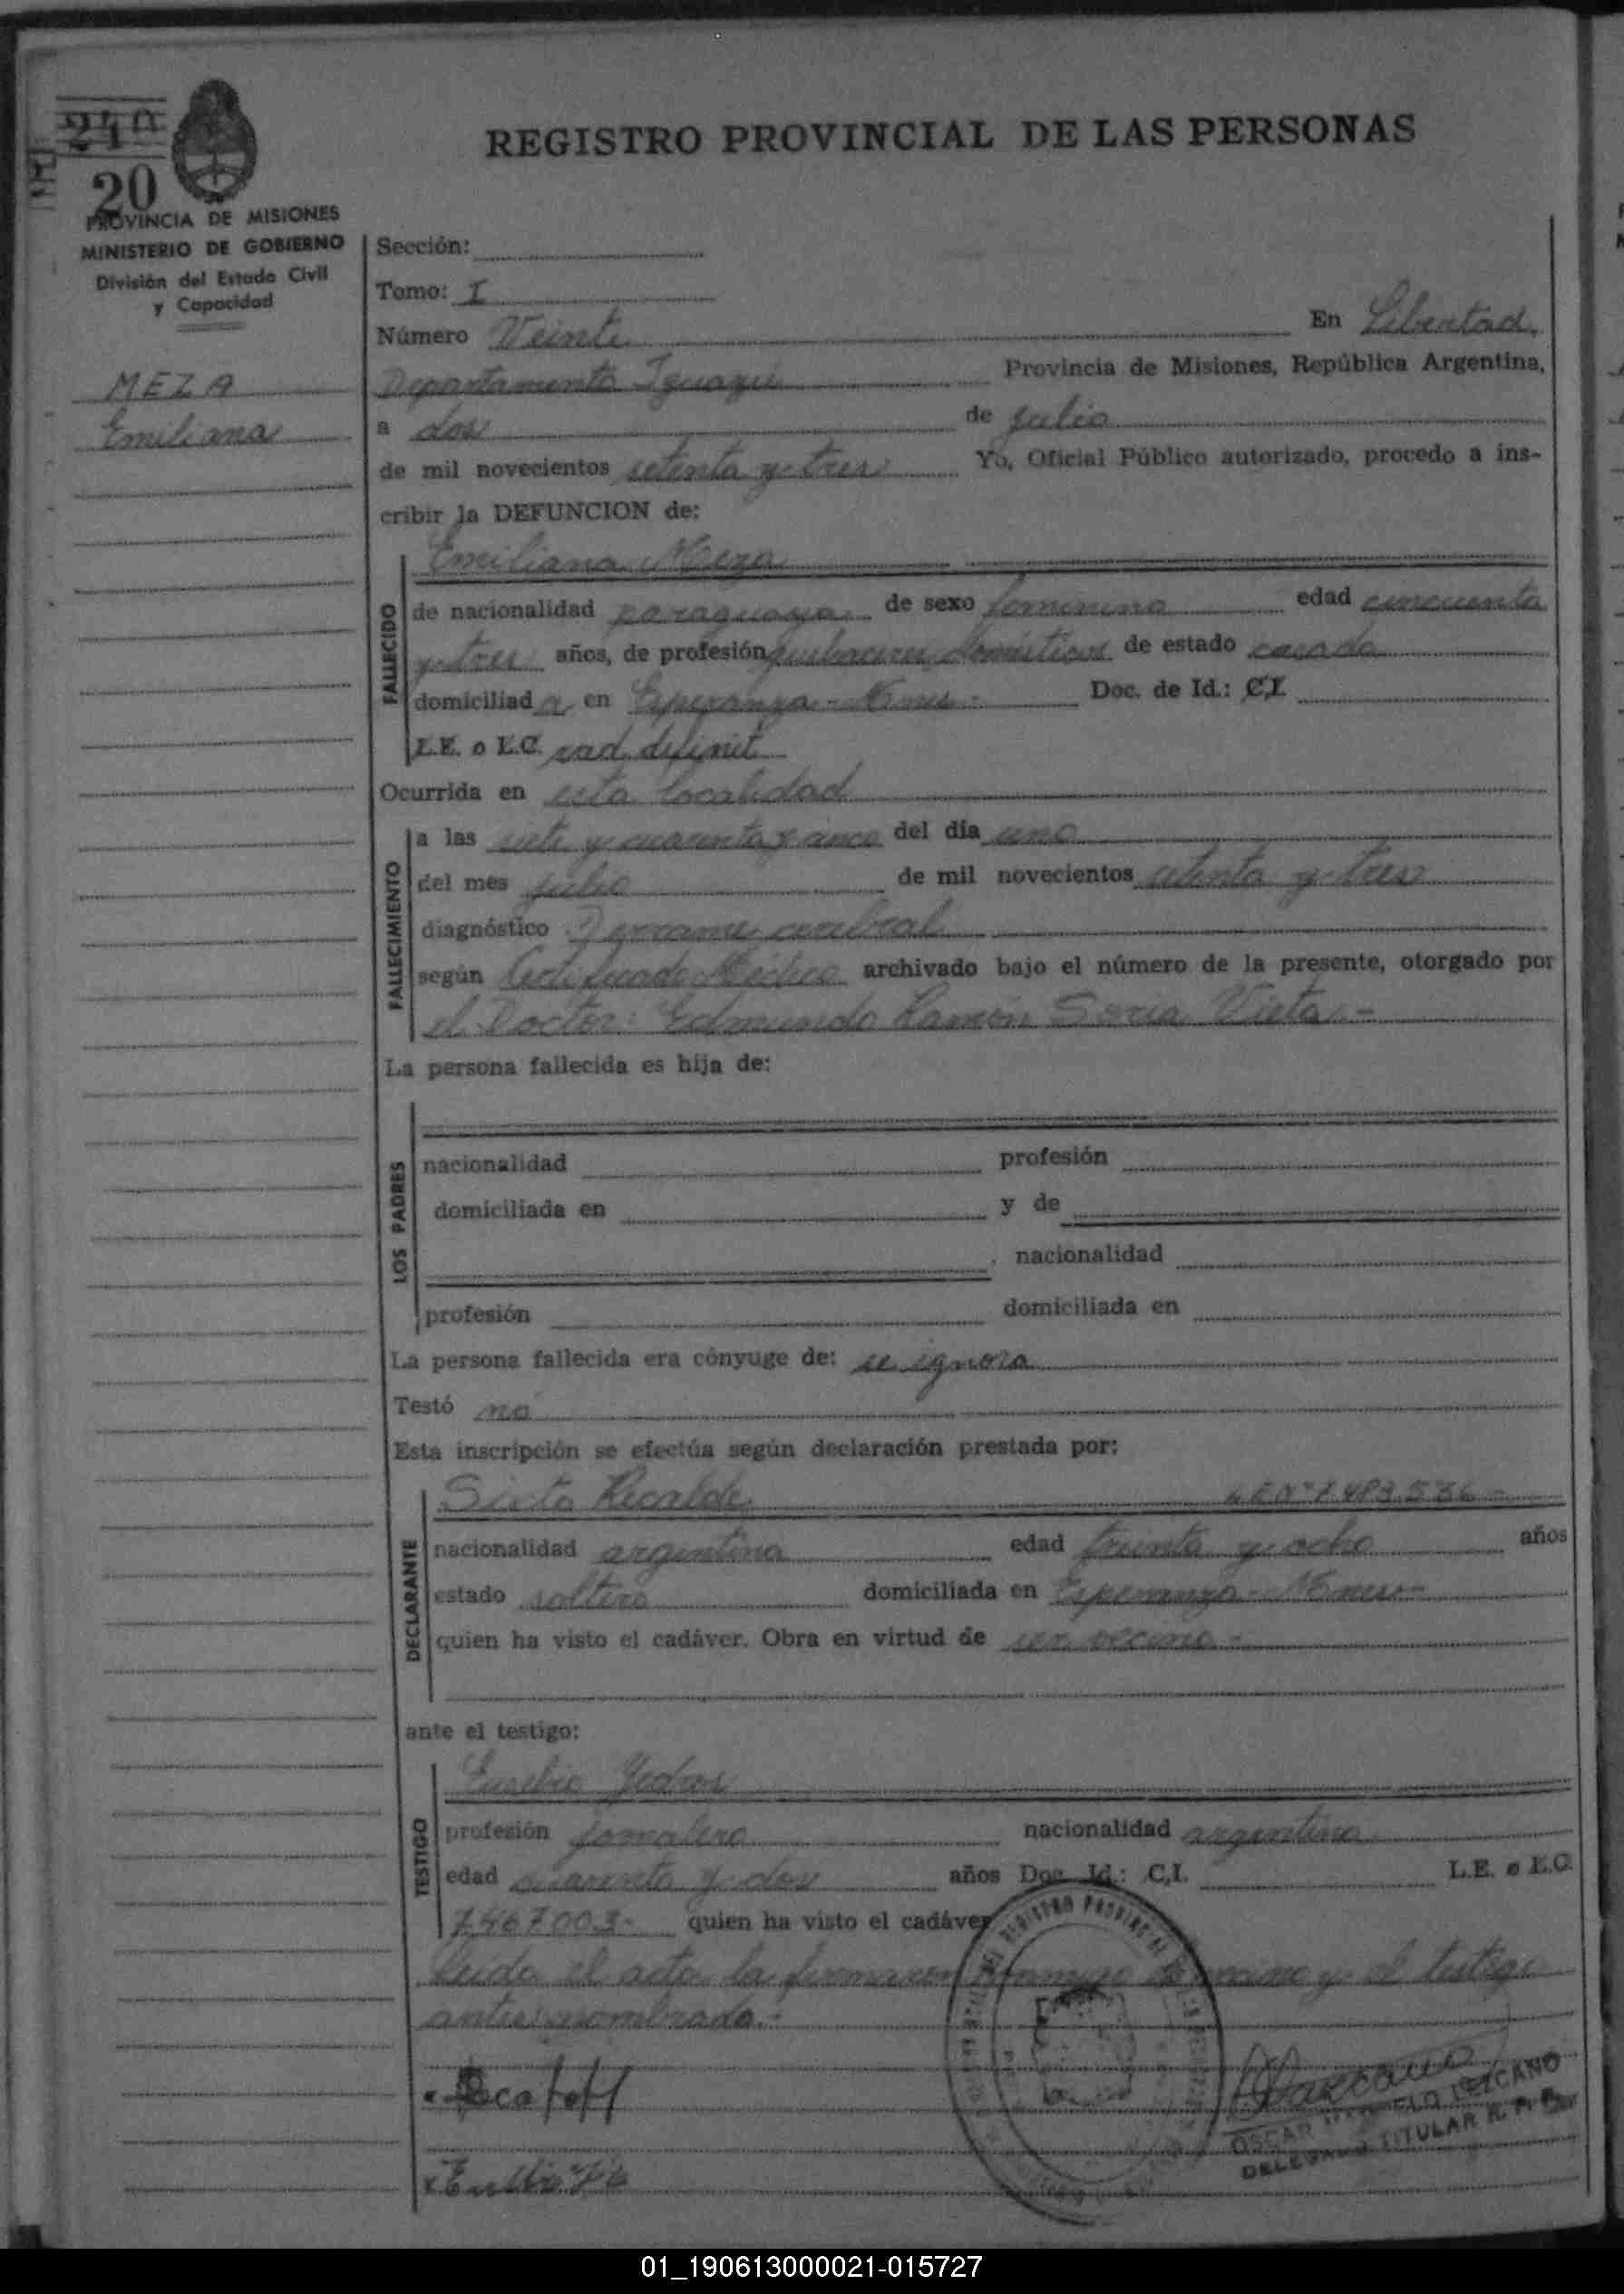 REGISTRO PROVINCIAL DE LAS PERSONAS
240
20
PROVINCIA DE MISIONES
MINISTERIO DE GOBIERNO
División del Estado Civil
y Capacidad
MEZA
Emiliana
Sección:
Tomo: I
Número Veinte En Libertad,
Departamento Iguazú Provincia de Misiones, República Argentina,
a dos de julio
de mil novecientos setenta y tres Yo, Oficial Público autorizado, procedo a ins-
cribir la DEFUNCION de:
FALLECIDO
Emiliana Meza
de nacionalidad paraguaya de sexo femenino edad cincuenta
y tres años, de profesión quehaceres domésticos de estado casada
domiciliad a en Esperanza - Mnes - Doc. de Id.: C.I.
L.E. o L.C. rad. definit.
Ocurrida en esta localidad
FALLECIMIENTO
a las siete y cuarenta y cinco del día uno
del mes julio de mil novecientos setenta y tres
diagnóstico Derrame cerebral
según Certificado Médico archivado bajo el número de la presente, otorgado por
el Doctor: Edmundo Ramón Soria Vieta.-
La persona fallecida es hija de:
LOS PADRES
nacionalidad profesión
domiciliada en y de
, nacionalidad
profesión domiciliada en
La persona fallecida era cónyuge de: se ignora
Testó no
Esta inscripción se efectúa según declaración prestada por:
DECLARANTE
Sixto Recalde L.E.Nº 7.483.536-
nacionalidad argentina edad treinta y ocho años
estado soltero domiciliada en Esperanza - Mnes-
quien ha visto el cadáver. Obra en virtud de ser vecino.-
ante el testigo:
TESTIGO
Eusebio Yedros
profesión jornalero nacionalidad argentina
edad cuarenta y dos años Doc. Id.: C.I. L.E. o L.C.
7.467.003- quien ha visto el cadáver
Leida el acta la firmaron conmigo el y el testigo
antes nombrado.-
REGISTRO PROVINCIAL
OSCAR LEZCANO
DELEGADO TITULAR R. P. P.
01_190613000021-015727